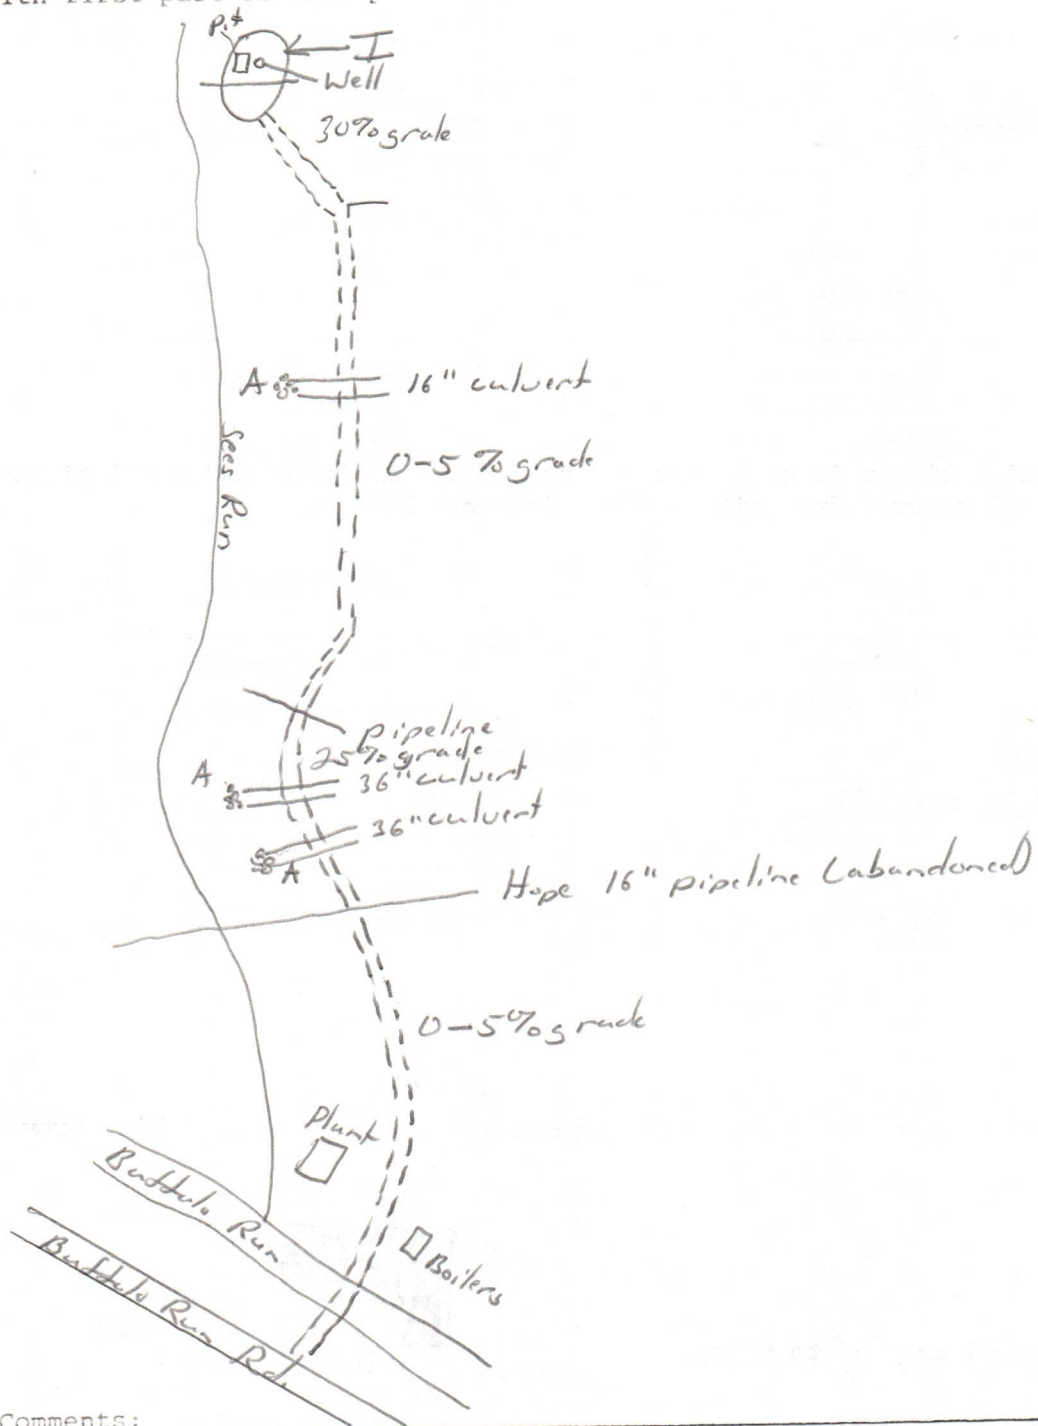 first part
Pit
I
Well
30% grade
A
16" culvert
0-5% grade
Sees Run
pipeline
25% grade
A
36" culvert
36" culvert
A
Hope 16" pipeline (abandoned)
0-5% grade
Plant
Buffalo Run
Boilers
Buffalo Run Rd.
Comments: